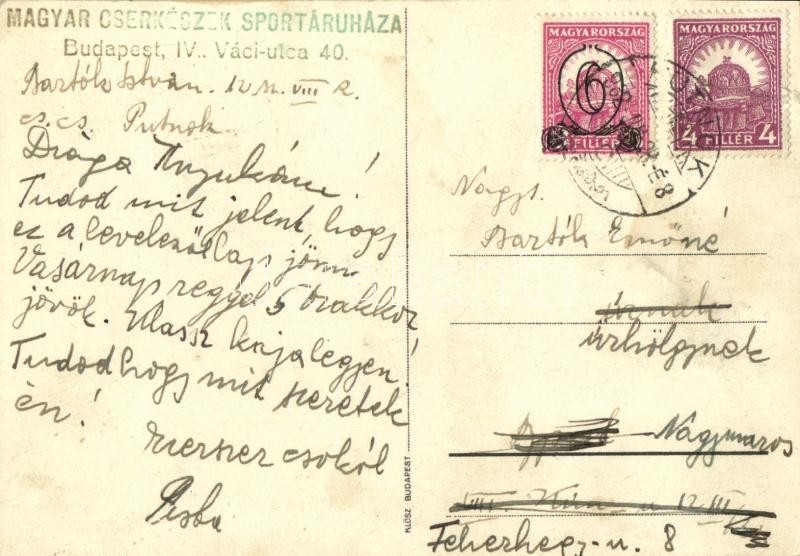 MAGYAR CSERKÉSZEK SPORTÁRUHÁZA
Budapest, IV., Váci-utca 40.
Bartók István. VIII
cs. cs. Putnok
Drága Anyukám!
Tudod mit jelent, hogy
ez a levelezőlap jön:
Vasárnap reggel 5 órakkor
jövök. Klassz kaja legyen!
Tudod hogy mit szeretek
én!
ezerszer csokól
Pista
KLÖSZ BUDAPEST
MAGYARORSZÁG
6
FILLÉR
MAGYARORSZÁG
4 FILLÉR 4
Nagys.
Bartók Emőné
úrnak
úrhölgynek
Nagymaros
VIII. u 12 III
Feherhegy-u. 8